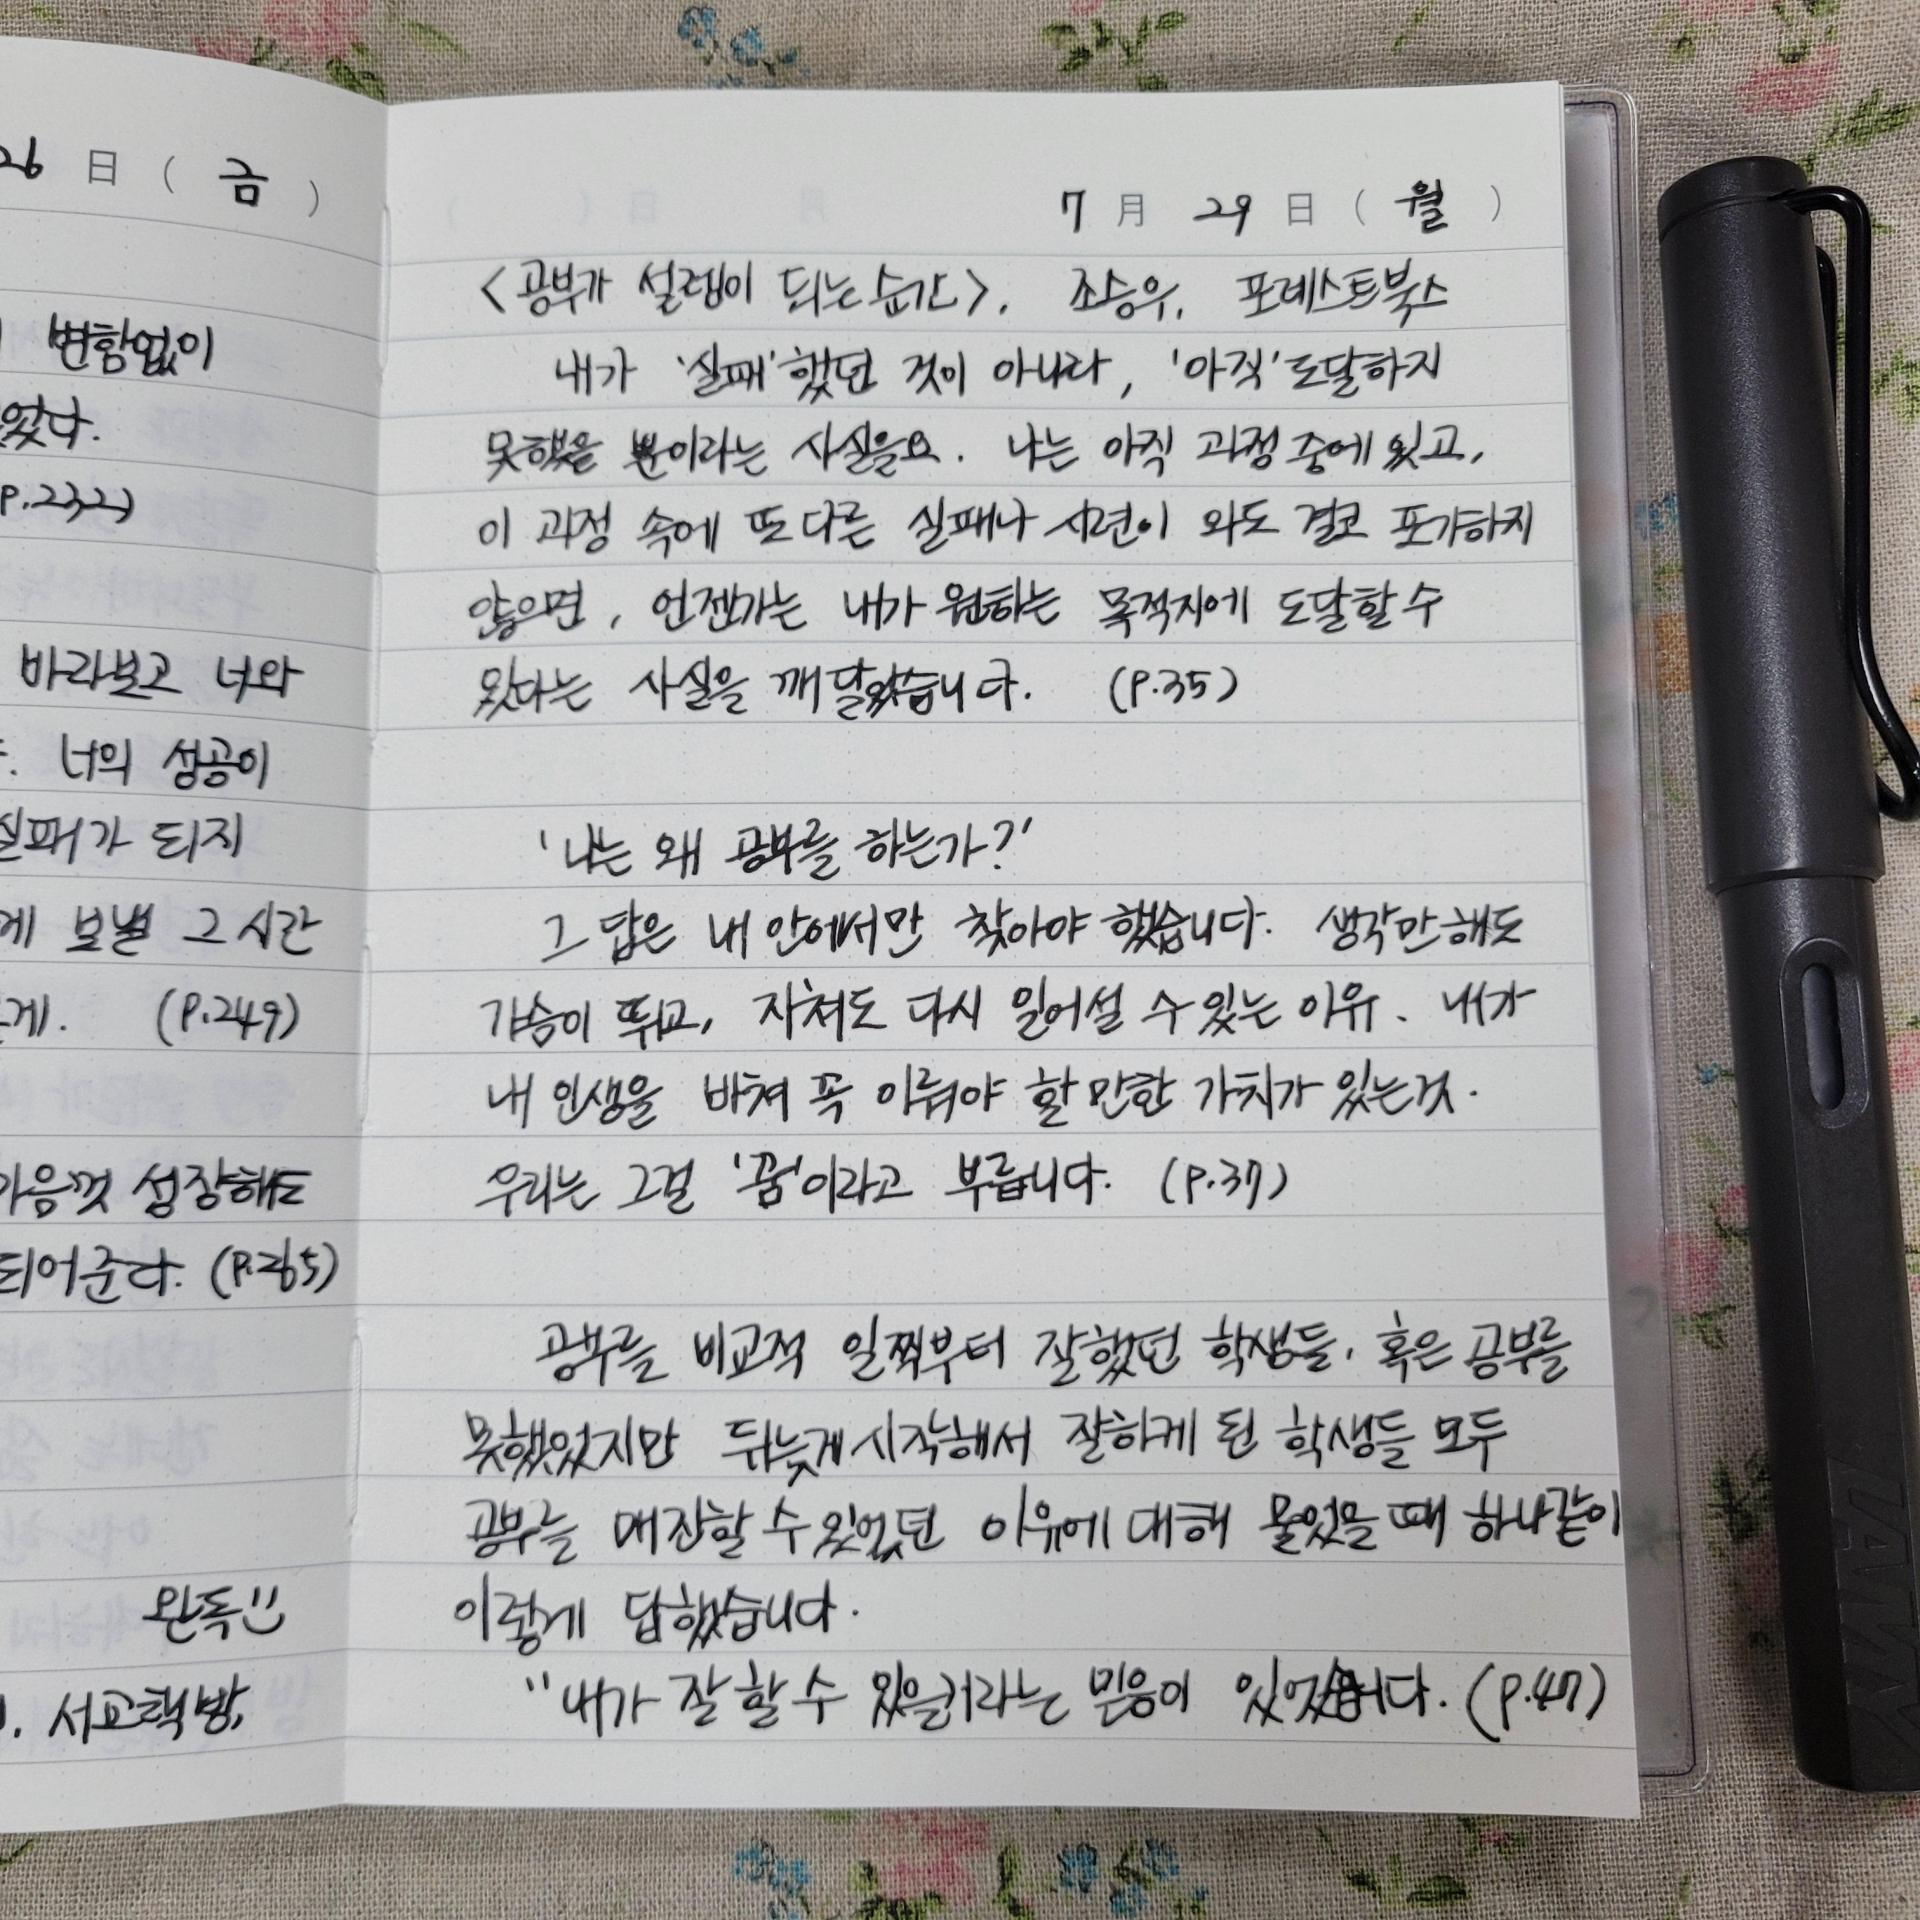 26 日 ( 금 )
변함없이
었다.
p.232)
바라보고 너와
너의 성공이
실패가 되지
게 보낼 그 시간
게. (p.249)
마음껏 성장해도
되어준다. (p.265)
완독
서교책방,
7 月 29 日 ( 월 )
<공부가 설렘이 되는 순간>, 조승우, 포레스트북스
내가 '실패'했던 것이 아니라, '아직' 도달하지
못했을 뿐이라는 사실을요. 나는 아직 과정 중에 있고,
이 과정 속에 또 다른 실패나 시련이 와도 결코 포기하지
않으면, 언젠가는 내가 원하는 목적지에 도달할 수
있다는 사실을 깨달았습니다. (p.35)
'나는 왜 공부를 하는가?'
그 답은 내 안에서만 찾아야 했습니다. 생각만 해도
가슴이 뛰고, 지쳐도 다시 일어설 수 있는 이유. 내가
내 인생을 바쳐 꼭 이뤄야 할 만한 가치가 있는 것.
우리는 그걸 '꿈'이라고 부릅니다. (p.37)
공부를 비교적 일찍부터 잘했던 학생들, 혹은 공부를
못했었지만 뒤늦게 시작해서 잘하게 된 학생들 모두
공부를 매진할 수 있었던 이유에 대해 물었을 때 하나같이
이렇게 답했습니다.
"내가 잘 할 수 있을거라는 믿음이 있었습니다. (p.47)
LAMY